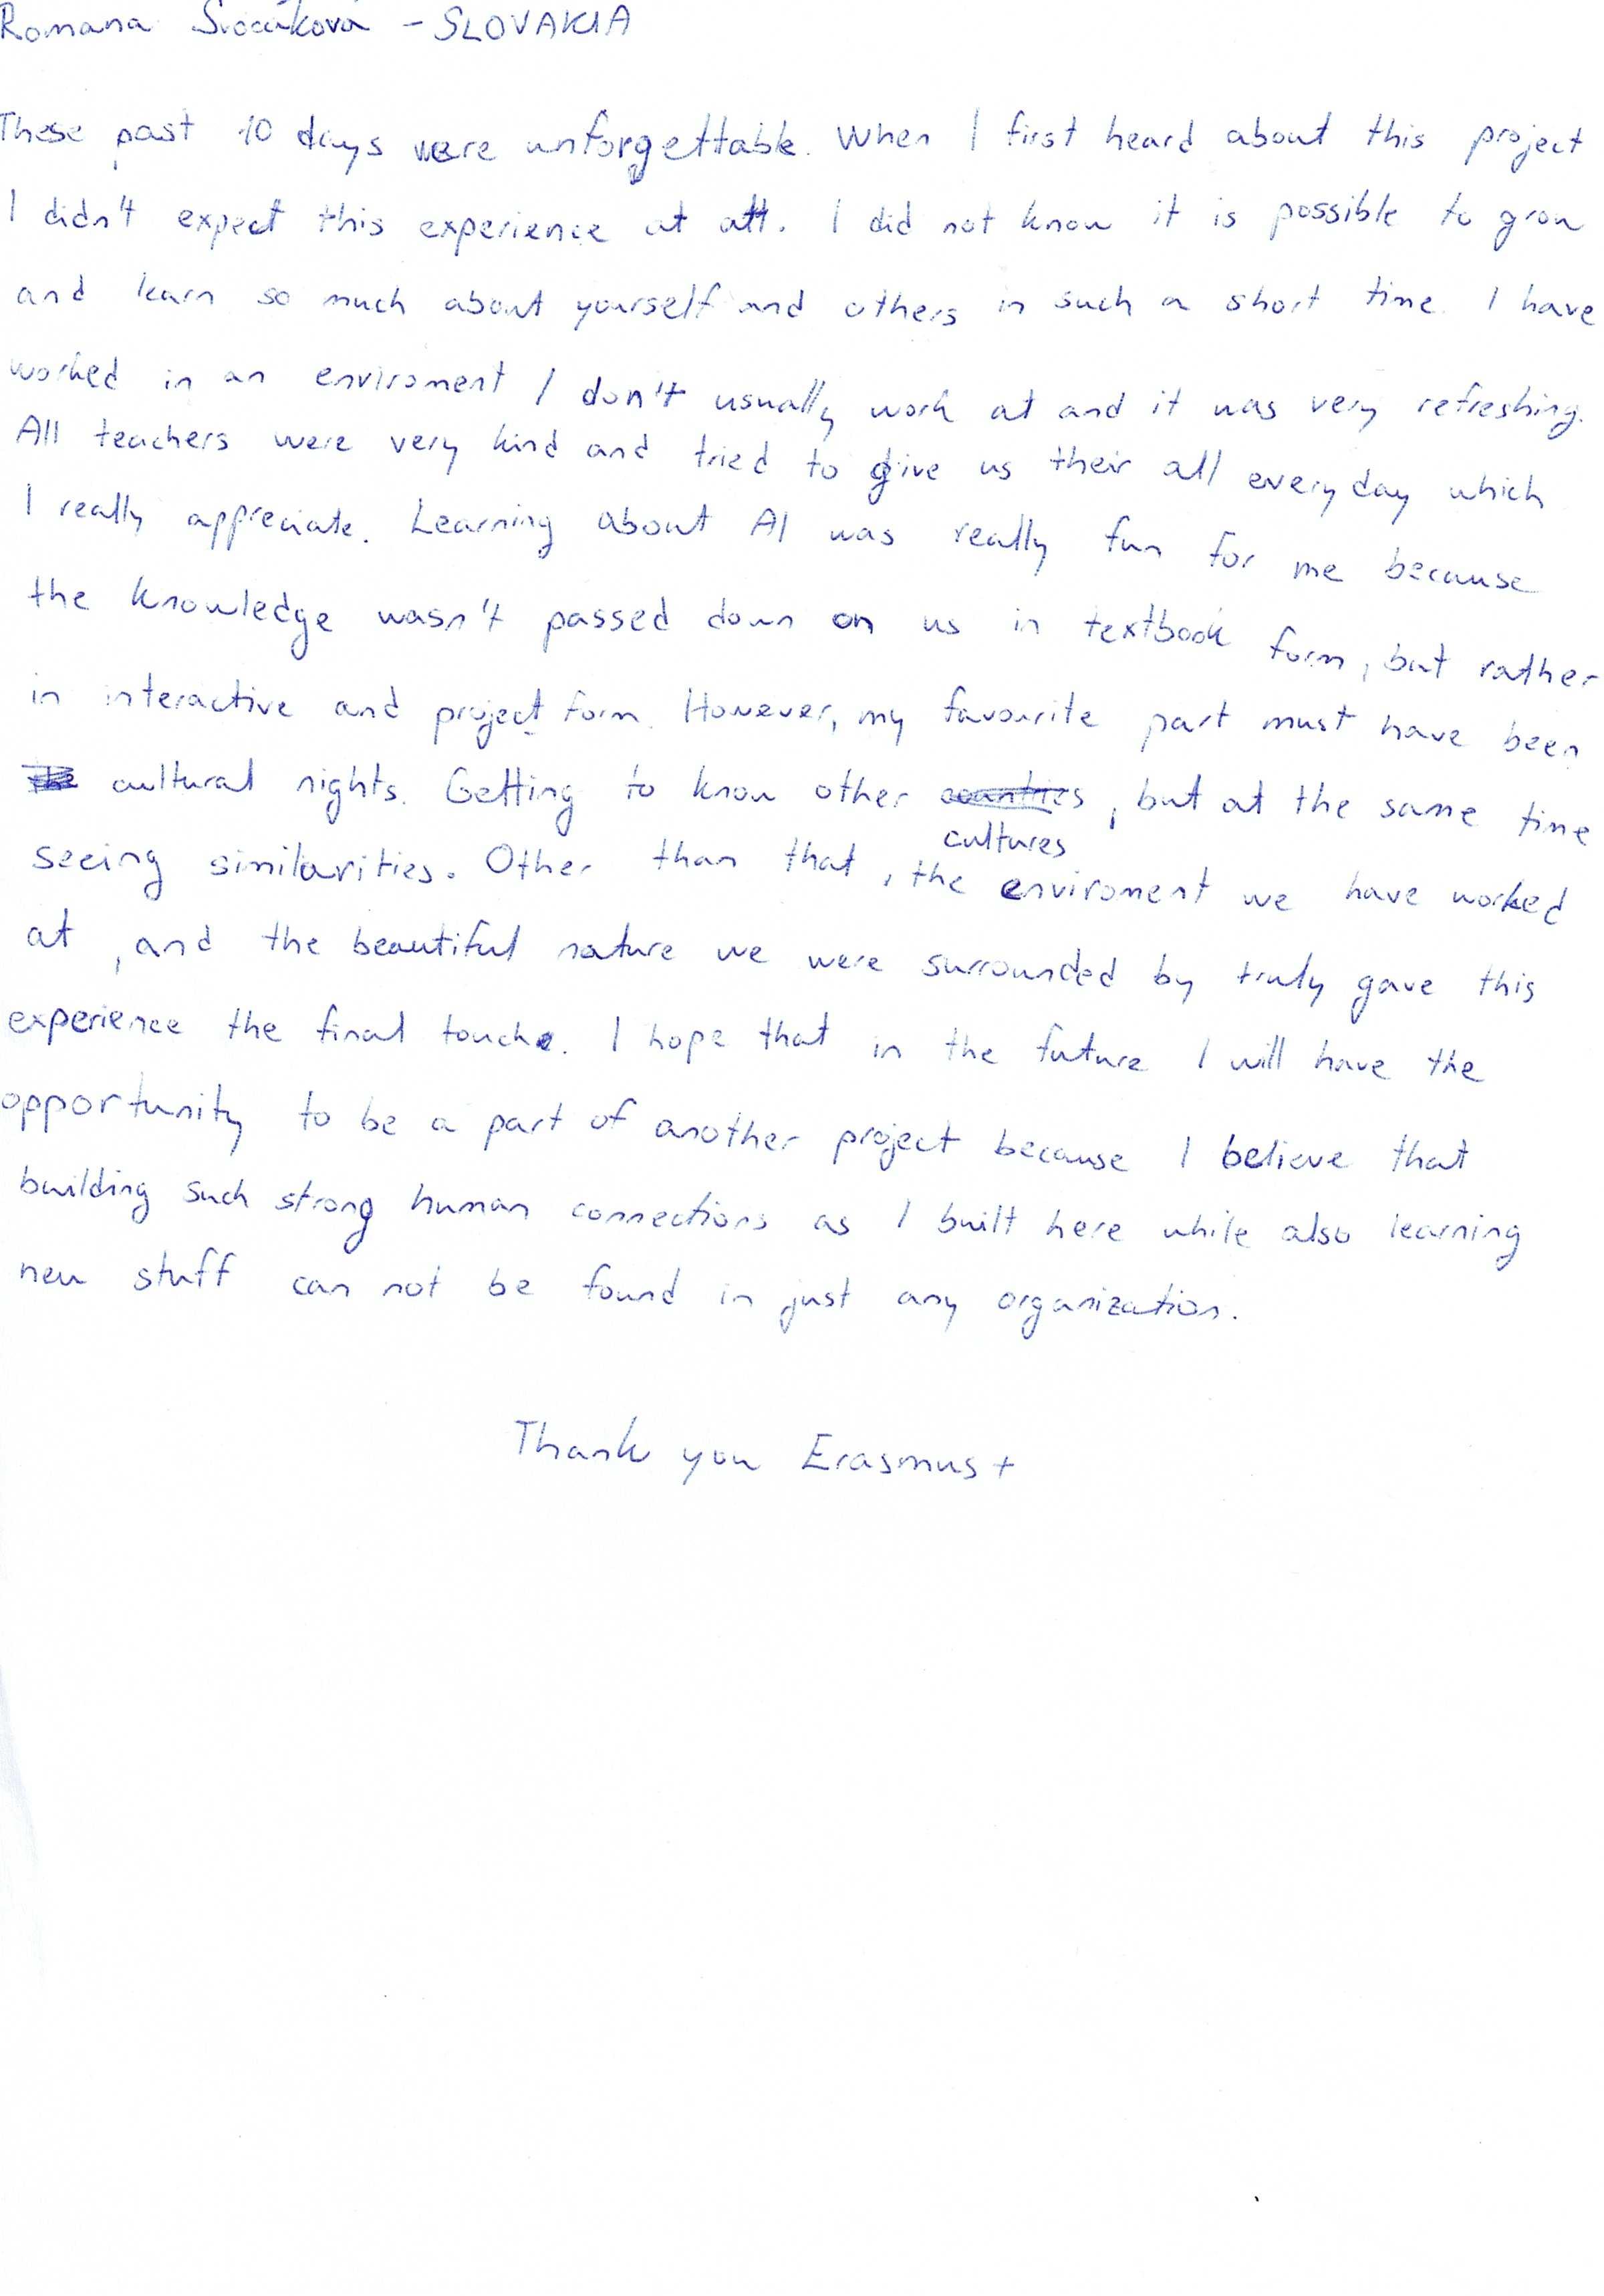 Romana - SLOVAKIA
These past 10 days were unforgettable. When I first heard about this project
I didn't expect this experience at all. I did not know it is possible to grow
and learn so much about yourself and others in such a short time. I have
worked in an enviroment I don't usually work at and it was very refreshing.
All teachers were very kind and tried to give us their all everyday which
I really appreciate. Learning about AI was really fun for me because
the knowledge wasn't passed down on us in textbook form, but rather
in interactive and project form. However, my favourite part must have been
cultural nights. Getting to know other cultures, but at the same time
seeing similarities. Other than that, the enviroment we have worked
at, and the beautiful nature we were surrounded by truly gave this
experience the final touch. I hope that in the future I will have the
opportunity to be a part of another project because I believe that
building such strong human connections as I built here while also learning
new stuff can not be found in just any organization.
Thank you Erasmus+